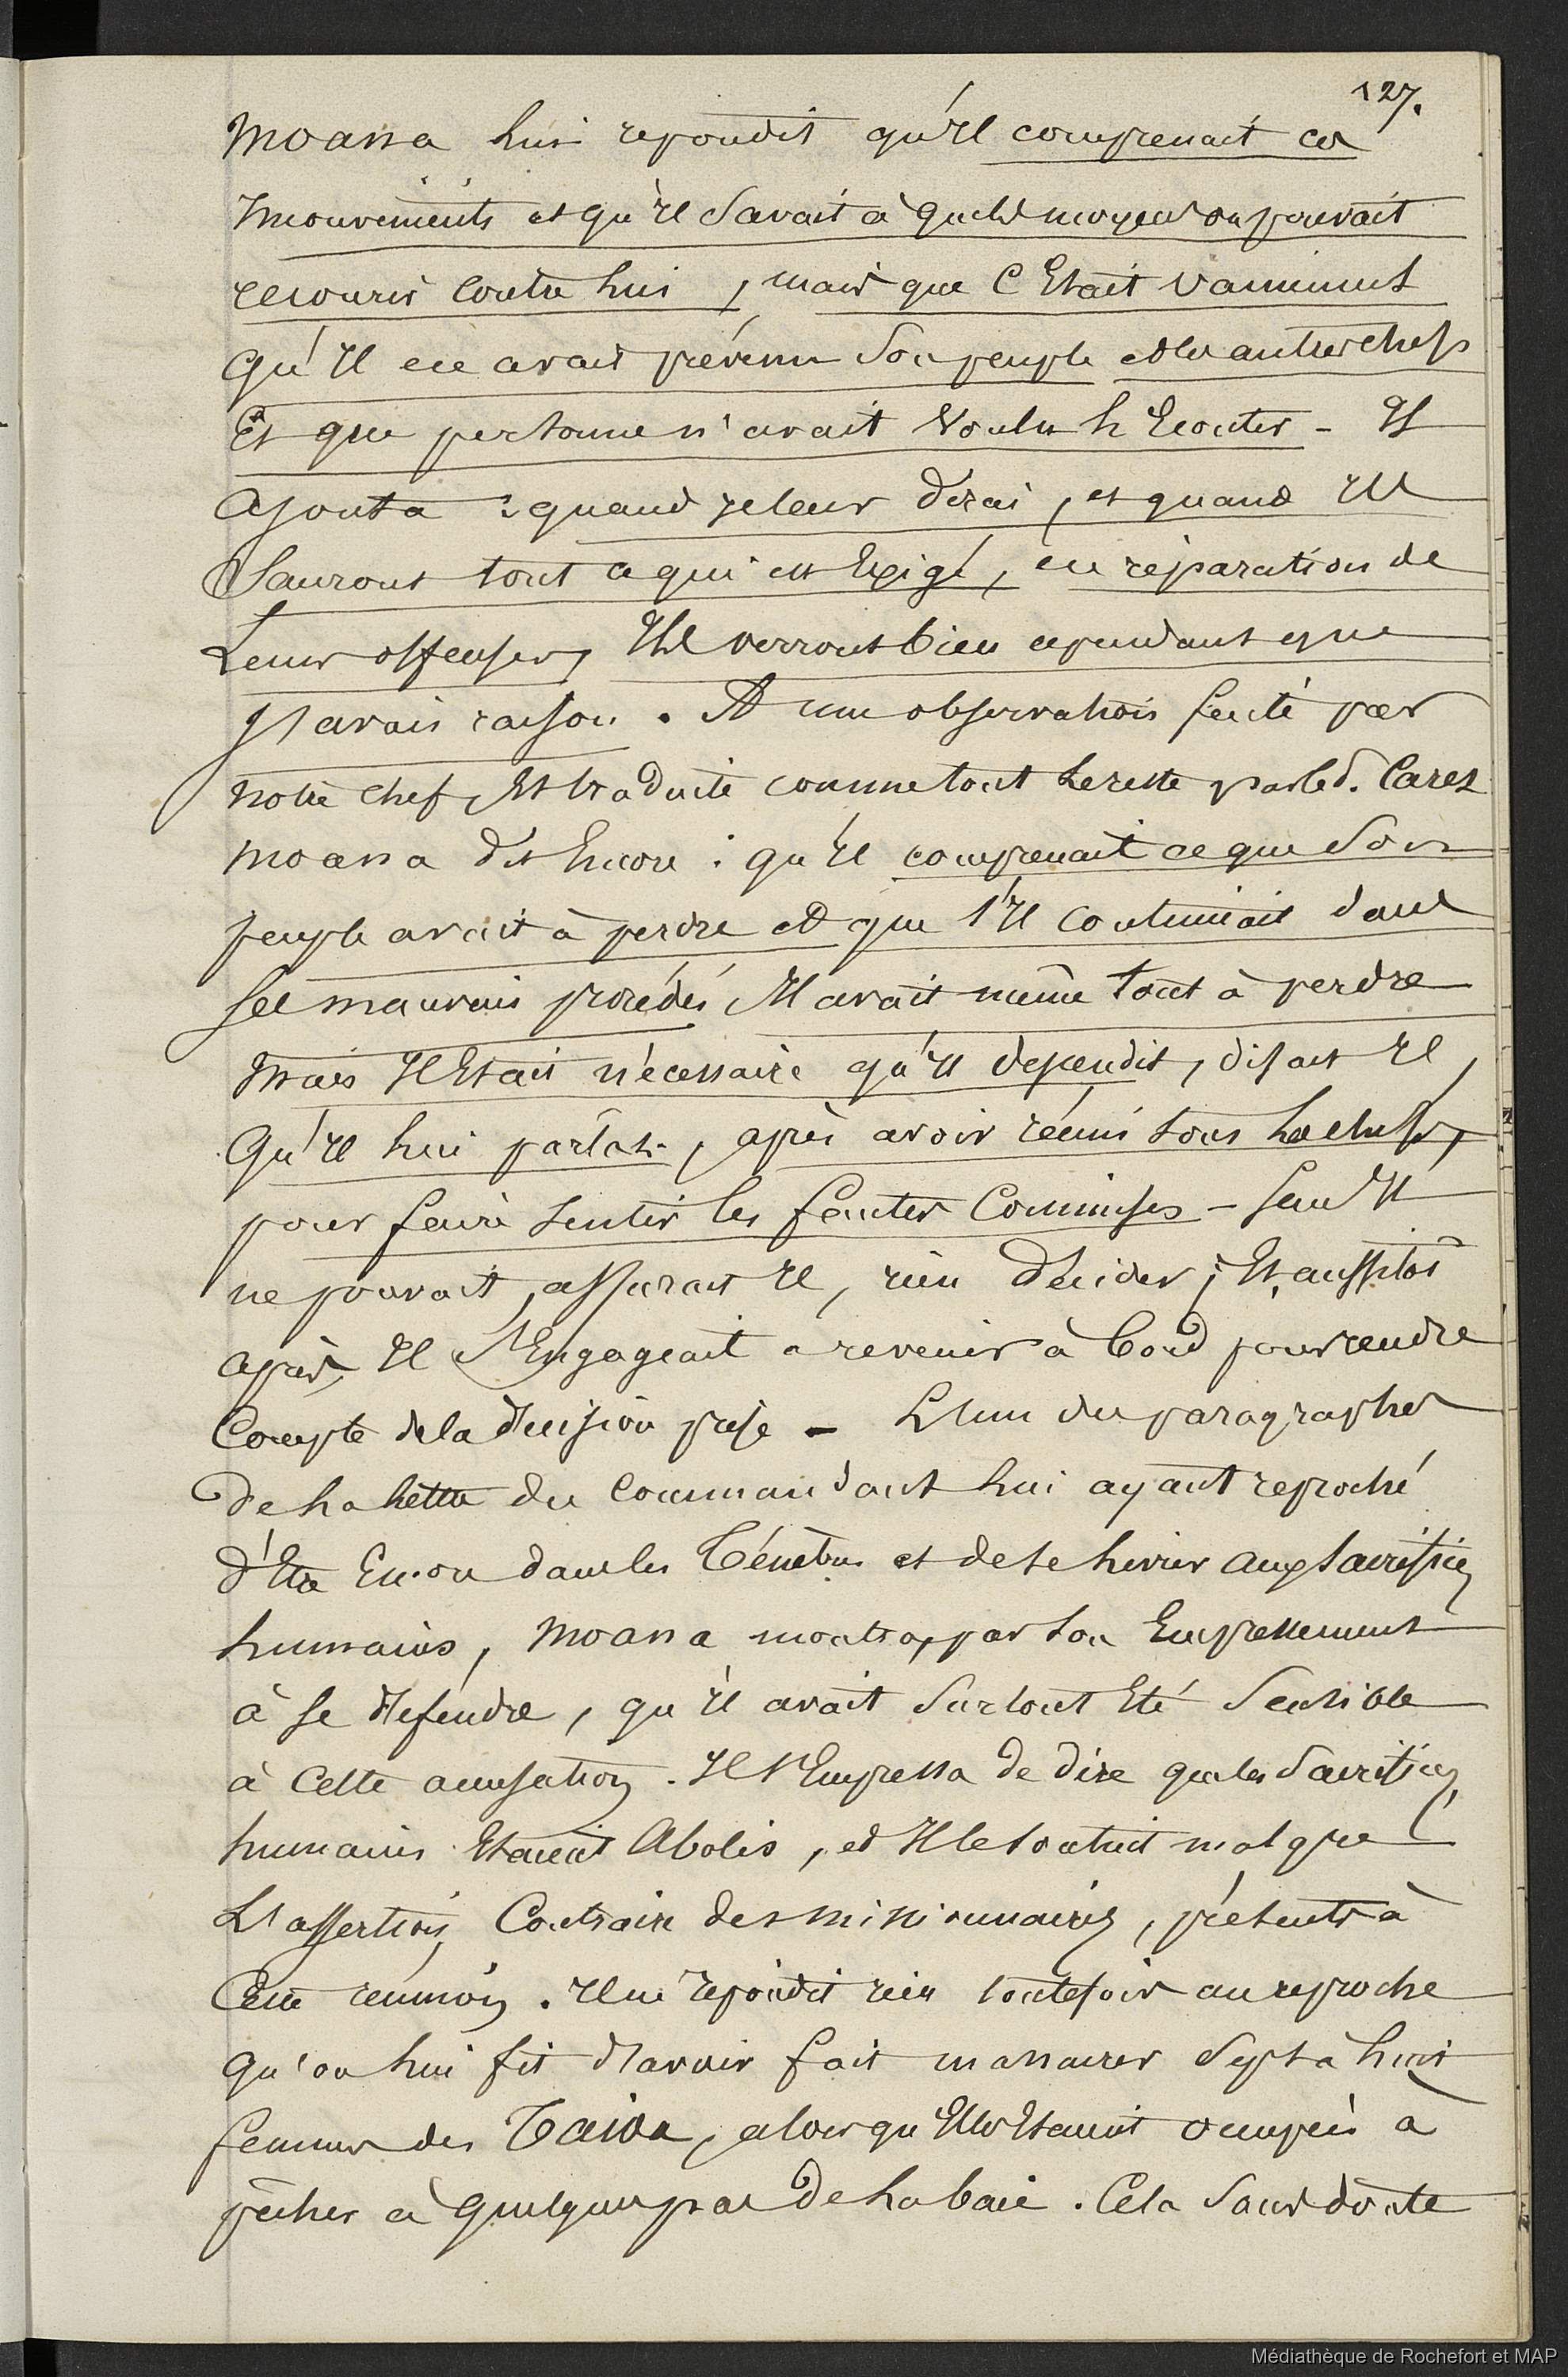 127.
Moana lui repondit qu'Il comprenait ces
mouvements et qu'Il Savait à quels moyens on pouvait
recourir contre lui, mais que C'Etait vainement
qu'Il en avait prévenu Son peuple et les autres chefs
Et que personne n'avait voulu l'Ecouter - Il
ajouta : quand je leur dirai, et quand Ils
Sauront tout ce qui est Exigé, en réparation de
Leurs offenses, Ils verront bien cependant que
j'avais raison. A une observation faite par
notre chef, Et traduite comme tout le reste par le d. Carez
Moana dit Encore : qu'Il comprenait ce que Son
peuple avait à perdre et que s'Il continuait dans
ses mauvais procédés Il avait même tout à perdre
mais Il Etait nécessaire qu'Il descendit, disait Il,
qu'Il lui parlat, après avoir réuni tous les chefs,
pour faire sentir les fautes Commises - Seul Il
ne pouvait, assurait Il, rien décider ; Et, aussitôt
après, Il S'Engageait a revenir à bord pour rendre
Compte de la décision prise - L'un des paragraphes
De la lettre du Commandant lui ayant reproché
d'Etre Encore dans les ténèbres et de se livrer aux sacrifices
humains, Moana montra, par son Empressement
à se défendre, qu'Il avait Surtout Eté Sensible
à Cette accusation. Il s'Empressa de dire que les Sacrifices
humains Etaient Abolis, et Il le soutint malgré
L'assertion Contraire des missionnaires, présents à
Cette réunion. Il ne repondit rien toutefois au reproche
qu'on lui fit d'avoir fait massacrer Sept à huit
femmes des Taioa, alors qu'Elles Etaient occupées à
pêcher à quelques pas De la baie. Cela Sans doute
Médiathèque de Rochefort et MAP